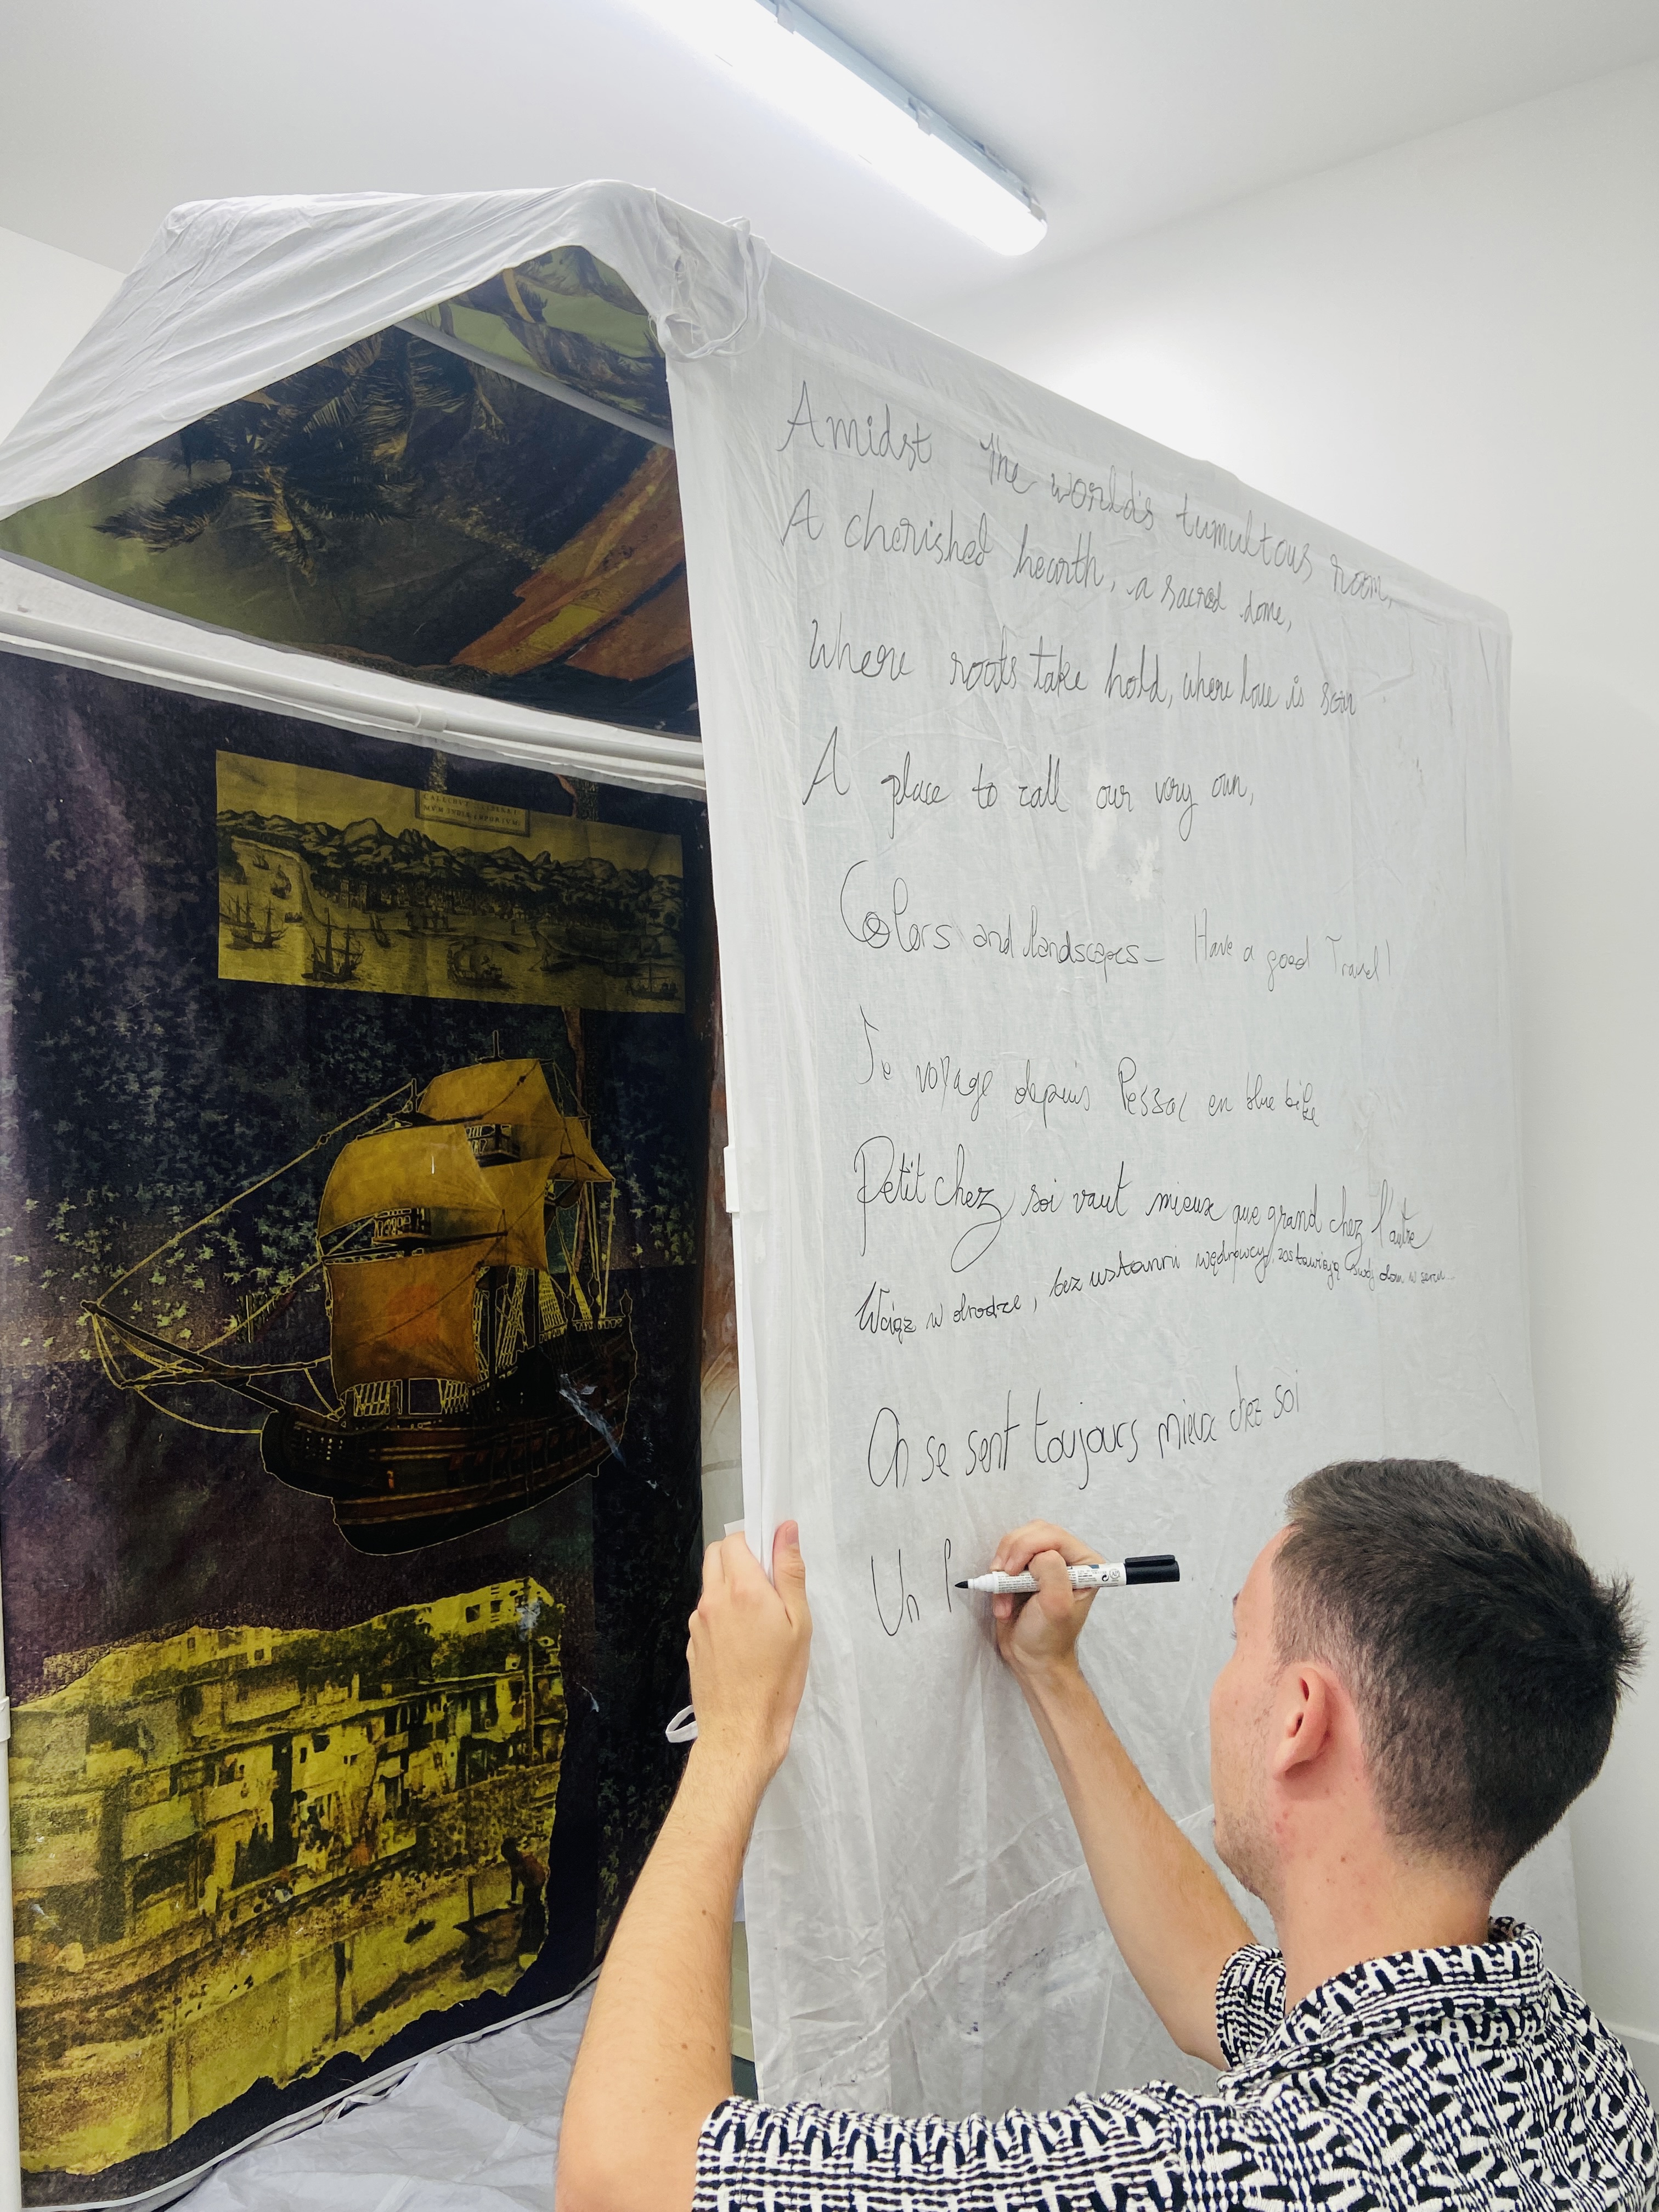 CALECHUT CELEBERRI
MVM INDIÆ EMPORIVM
Amidst the world's tumultous room,
A cherished hearth, a sacred dome,
Where roots take hold, where love is sown
A place to call our very own,
Colors and landscapes – Have a good Travel!
Je voyage depuis Pessac en blue bike
Petit chez soi vaut mieux que grand chez l'autre
Wciąż w drodze, bez ustanni wędrowcy, zostawiają swój dom w sercu
On se sent toujours mieux chez soi
Un